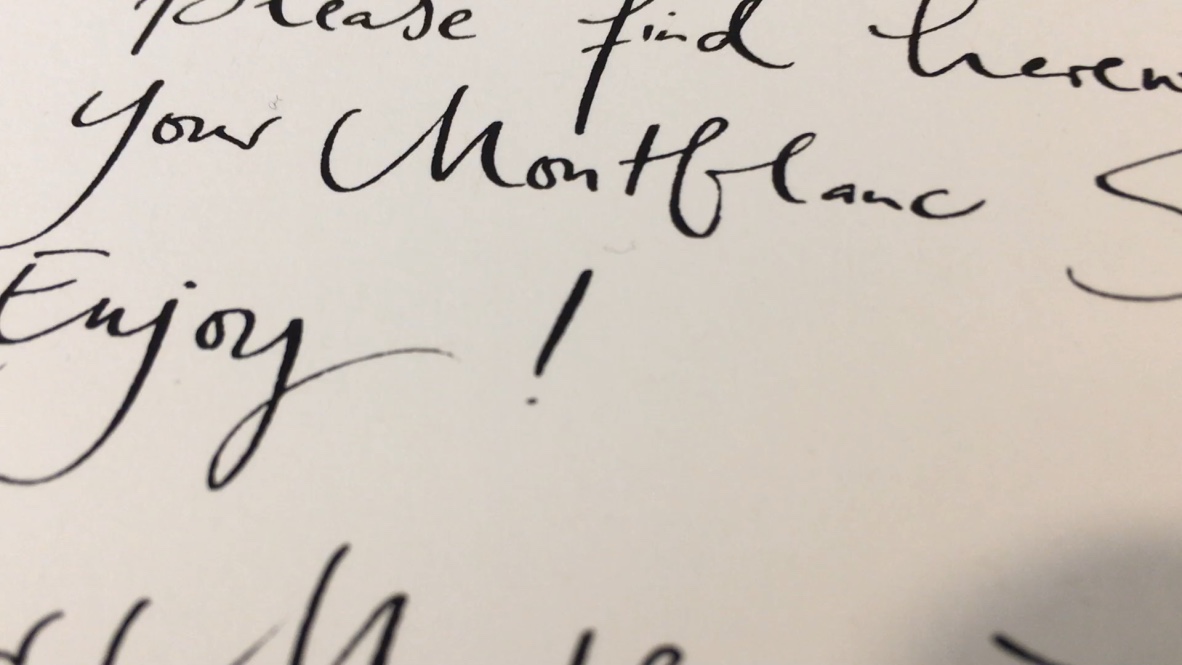 please find
your Montblanc
Enjoy !